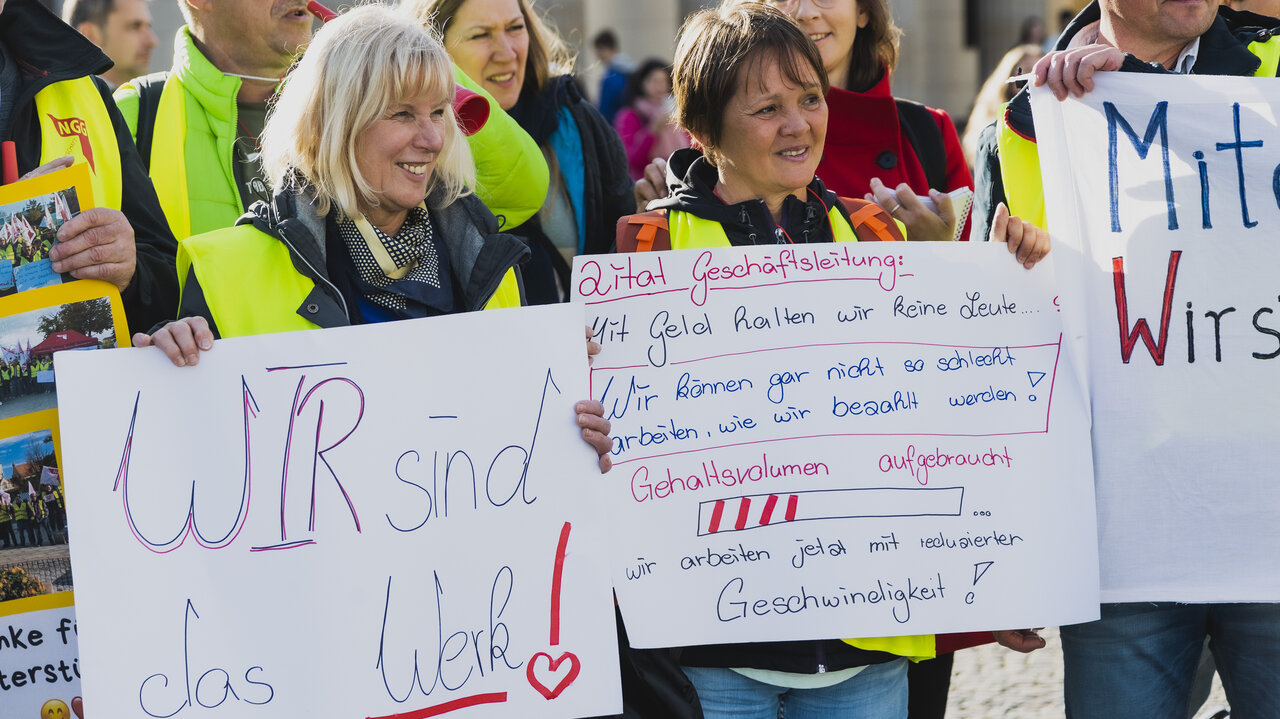 NGG
WIR sind
das Werk!
Zitat Geschäftsleitung:
Mit Geld halten wir keine Leute....
Wir können gar nicht so schlecht
arbeiten, wie wir bezahlt werden!
Gehaltsvolumen aufgebraucht
...
wir arbeiten jetzt mit reduzierten
Geschwindigkeit!
Wir